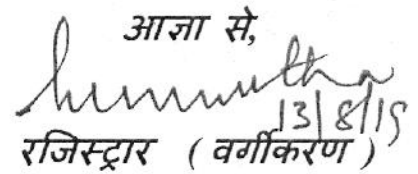 आज्ञा से,
13/8/19
रजिस्ट्रार ( वर्गीकरण )